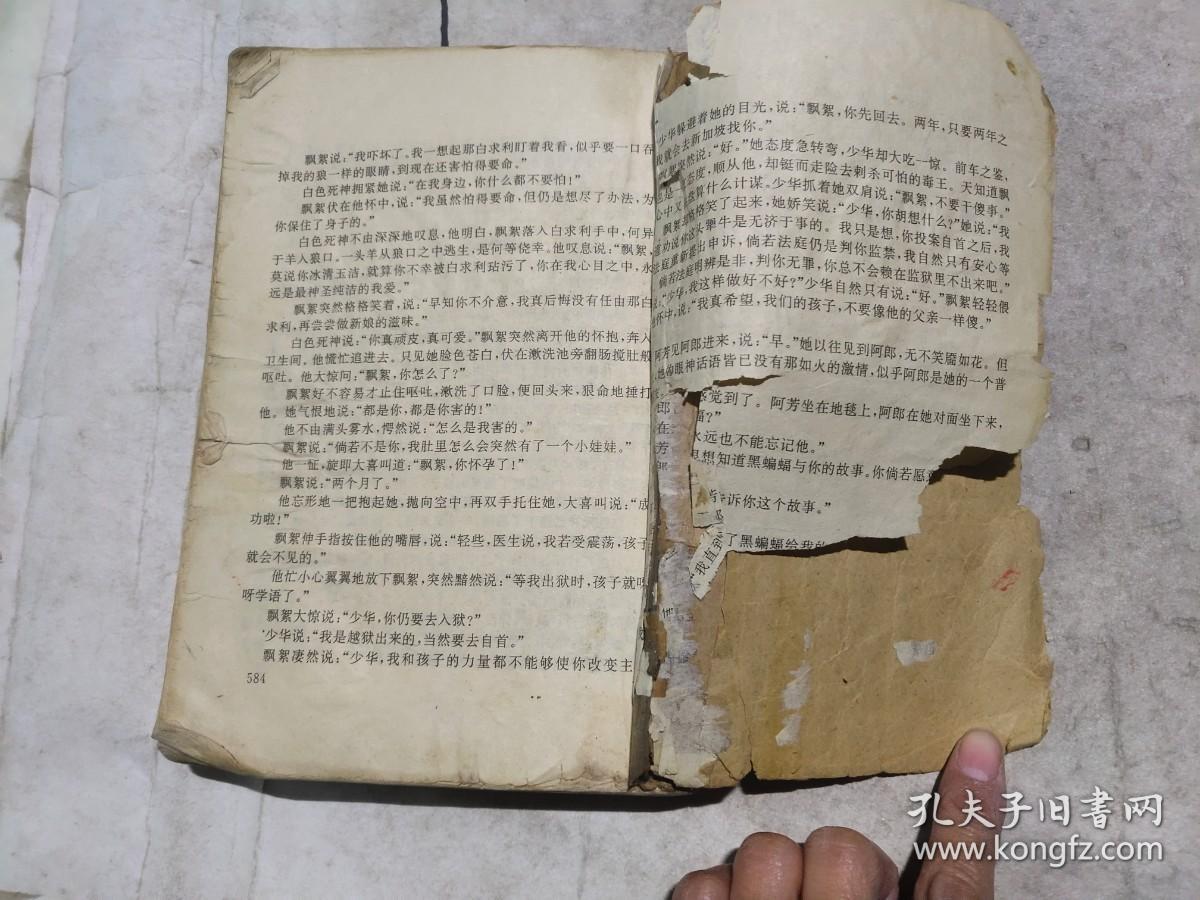 飘絮说:“我吓坏了。我一想起那白求利盯着我看,似乎要一口吞
掉我的狼一样的眼睛,到现在还害怕得要命。”
白色死神拥紧她说:“在我身边,你什么都不要怕!”
飘絮伏在他怀中,说:“我虽然怕得要命,但仍是想尽了办法,为
你保住了身子的。”
白色死神不由深深地叹息,他明白,飘絮落入白求利手中,何异
于羊入狼口。一头羊从狼口之中逃生,是何等侥幸。他叹息说:“飘絮,
莫说你冰清玉洁,就算你不幸被白求利玷污了,你在我心目之中,永
远是最神圣纯洁的我爱。”
飘絮突然格格笑着,说:“早知你不介意,我真后悔没有任由那白
求利,再尝尝做新娘的滋味。”
白色死神说:“你真顽皮,真可爱。”飘絮突然离开他的怀抱,奔入
卫生间。他慌忙追进去。只见她脸色苍白,伏在漱洗池旁翻肠搅肚般
呕吐。他大惊问:“飘絮,你怎么了?”
飘絮好不容易才止住呕吐,漱洗了口脸,便回头来,狠命地捶打
他。她气恨地说:“都是你,都是你害的!”
他不由满头雾水,愕然说:“怎么是我害的。”
飘絮说:“倘若不是你,我肚里怎么会突然有了一个小娃娃。”
他一怔,旋即大喜叫道:“飘絮,你怀孕了!”
飘絮说:“两个月了。”
他忘形地一把抱起她,抛向空中,再双手托住她,大喜叫说:“成
功啦!”
飘絮伸手指按住他的嘴唇,说:“轻些,医生说,我若受震荡,孩子
就会不见的。”
他忙小心翼翼地放下飘絮,突然黯然说:“等我出狱时,孩子就
呀学语了。”
飘絮大惊说:“少华,你仍要去入狱?”
少华说:“我是越狱出来的,当然要去自首。”
飘絮凄然说:“少华,我和孩子的力量都不能够使你改变主
584
少华躲避着她的目光,说:“飘絮,你先回去。两年,只要两年之
我就会去新加坡找你。”
飘絮突然说:“好。”她态度急转弯,少华却大吃一惊。前车之鉴,
是一 态度,顺从他,却铤而走险去刺杀可怕的毒王。天知道飘
心中又 盘算什么计谋。少华抓着她双肩说:“飘絮,不要干傻事。”
飘絮却格格笑了起来,她娇笑说:“少华,你胡想什么?”她说:“我
道劝说你这头犟牛是无济于事的。我只是想,你投案自首之后,我
法庭重新提出申诉,倘若法庭仍是判你监禁,我自然只有安心等
倘若法庭明辨是非,判你无罪,你总不会赖在监狱里不出来吧。”
“少华,我这样做好不好?”少华自然只有说:“好。”飘絮轻轻偎
怀中,说:“我真希望,我们的孩子,不要像他的父亲一样傻。”
阿芳见阿郎进来,说:“早。”她以往见到阿郎,无不笑靥如花。但
她的眼神话语皆已没有那如火的激情,似乎阿郎是她的一个普
郎 感觉到了。阿芳坐在地毯上,阿郎在她对面坐下来,
在 ?”
芳 永远也不能忘记他。”
想知道黑蝙蝠与你的故事。你倘若愿
告诉你这个故事。”
“我直到 了黑蝙蝠给我的
孔夫子旧书网
www.kongfz.com